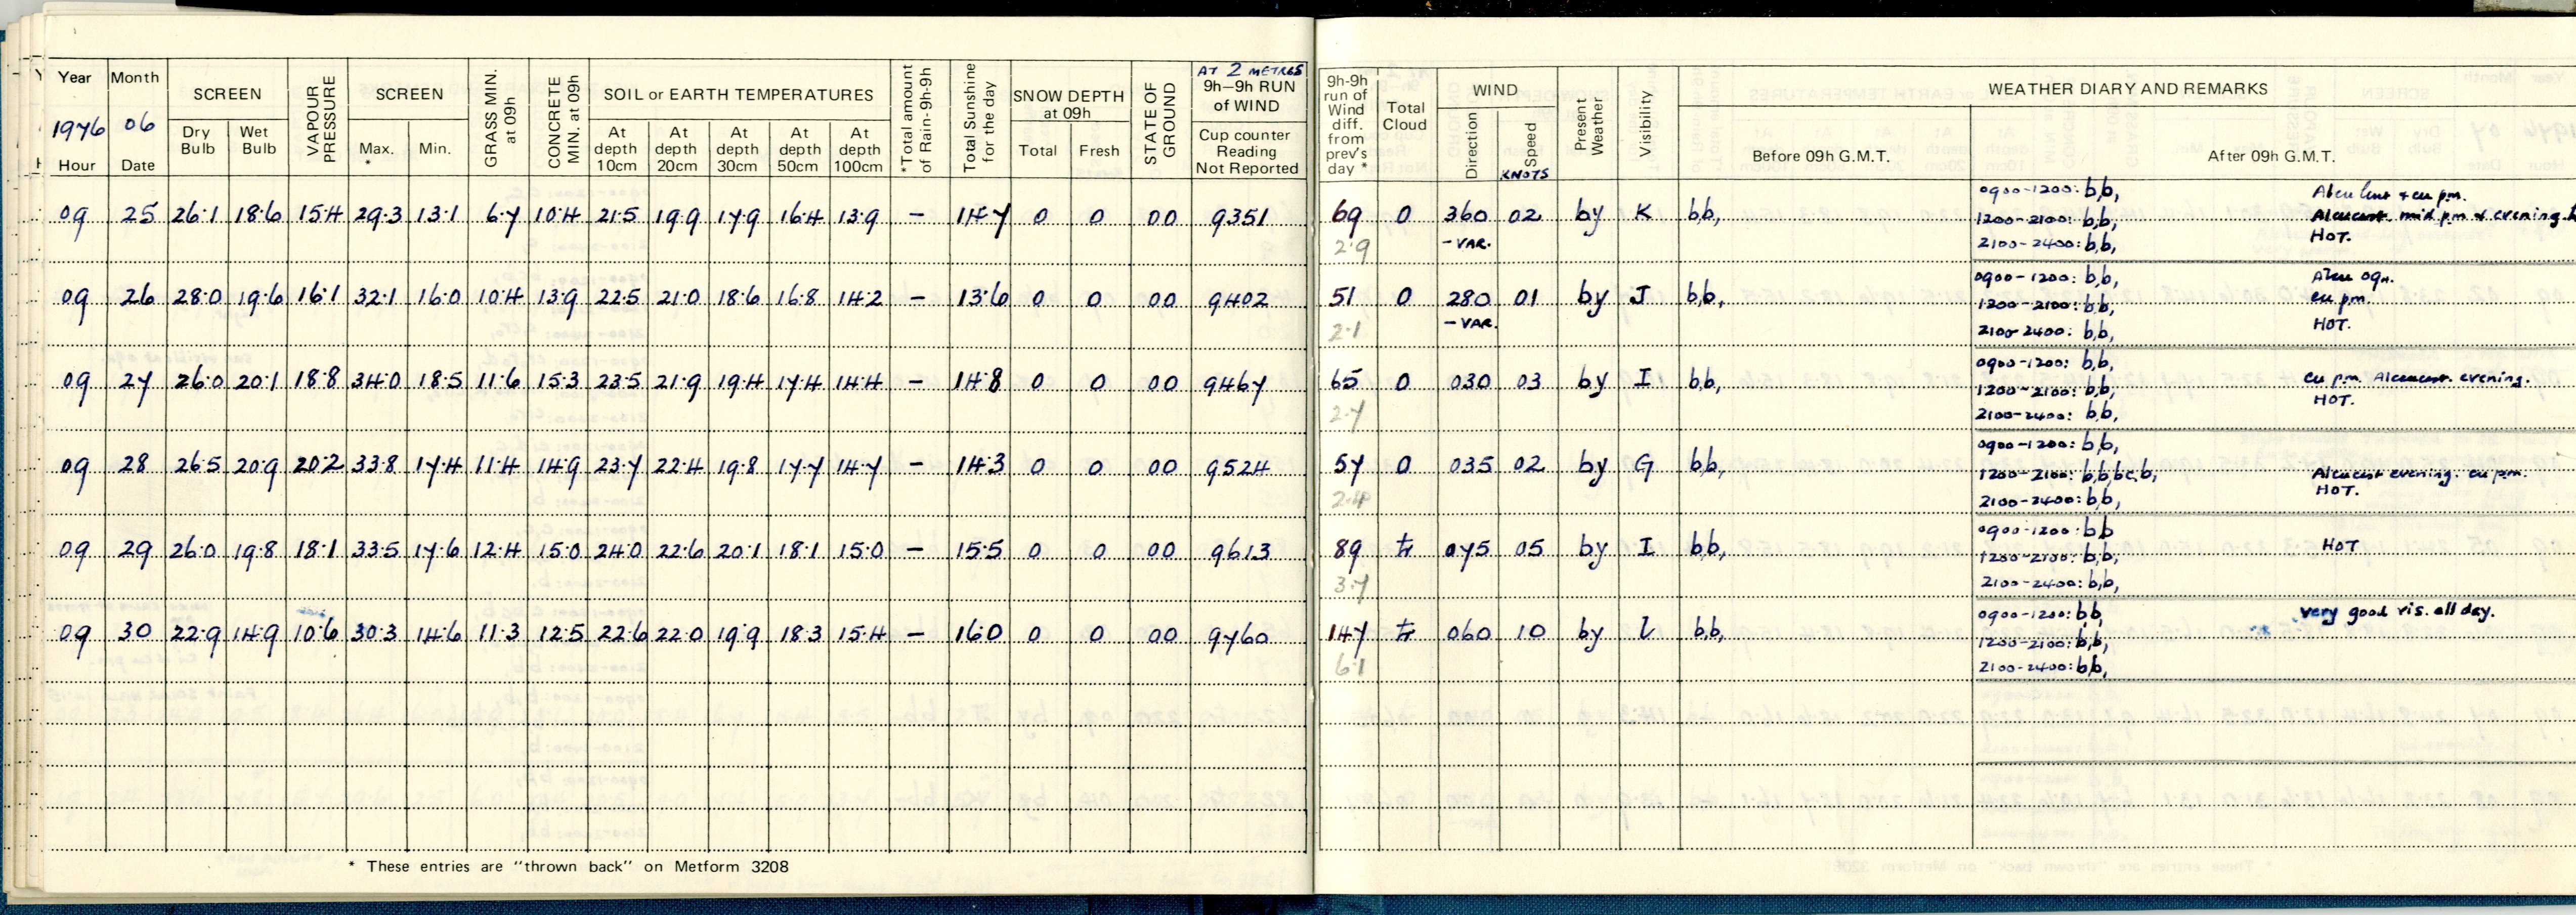 Year Month SCREEN VAPOUR PRESSURE SCREEN GRASS MIN. at 09h CONCRETE MIN. at 09h SOIL or EARTH TEMPERATURES *Total amount of Rain-9h-9h Total Sunshine for the day SNOW DEPTH at 09h STATE OF GROUND AT 2 METRES 9h–9h RUN of WIND
1976 06 Dry Bulb Wet Bulb Max. * Min. At depth 10cm At depth 20cm At depth 30cm At depth 50cm At depth 100cm Total Fresh Cup counter Reading Not Reported
Hour Date
09 25 26·1 18·6 15·4 29·3 13·1 6·7 10·4 21·5 19·9 17·9 16·4 13·9 – 14·7 0 0 00 9351
09 26 28·0 19·6 16·1 32·1 16·0 10·4 13·9 22·5 21·0 18·6 16·8 14·2 – 13·6 0 0 00 9402
09 27 26·0 20·1 18·8 34·0 18·5 11·6 15·3 23·5 21·9 19·4 17·4 14·4 – 14·8 0 0 00 9467
09 28 26·5 20·9 20·2 33·8 17·4 11·4 14·9 23·7 22·4 19·8 17·7 14·7 – 14·3 0 0 00 9524
09 29 26·0 19·8 18·1 33·5 17·6 12·4 15·0 24·0 22·6 20·1 18·1 15·0 – 15·5 0 0 00 9613
09 30 22·9 14·9 10·6 30·3 14·6 11·3 12·5 22·6 22·0 19·9 18·3 15·4 – 16·0 0 0 00 9760
* These entries are "thrown back" on Metform 3208
9h-9h run of Wind diff. from prev's day * Total Cloud WIND Present Weather Visibility WEATHER DIARY AND REMARKS
Direction Speed KNOTS Before 09h G.M.T. After 09h G.M.T.
0900-1200: b,b, Alcu lent & cu pm.
69 0 360 02 by K b,b, 1200-2100: b,b, Alcucast mid pm & evening.
2·9 -VAR. 2100-2400: b,b, HOT.
0900-1200: b,b, Alcu 09h.
51 0 280 01 by J b,b, 1200-2100: b,b, cu pm.
2·1 -VAR. 2100-2400: b,b, HOT.
0900-1200: b,b,
65 0 030 03 by I b,b, 1200-2100: b,b, cu pm. Alcucast. evening.
2·7 2100-2400: b,b, HOT.
0900-1200: b,b,
57 0 035 02 by G b,b, 1200-2100: b,b,bc,b, Alcucast evening. cu pm.
2·4 2100-2400: b,b, HOT.
0900-1200: b,b
89 tr 075 05 by I b,b, 1200-2100: b,b, HOT
3·7 2100-2400: b,b,
0900-1200: b,b, very good vis. all day.
147 tr 060 10 by l b,b, 1200-2100: b,b,
6·1 2100-2400: b,b,